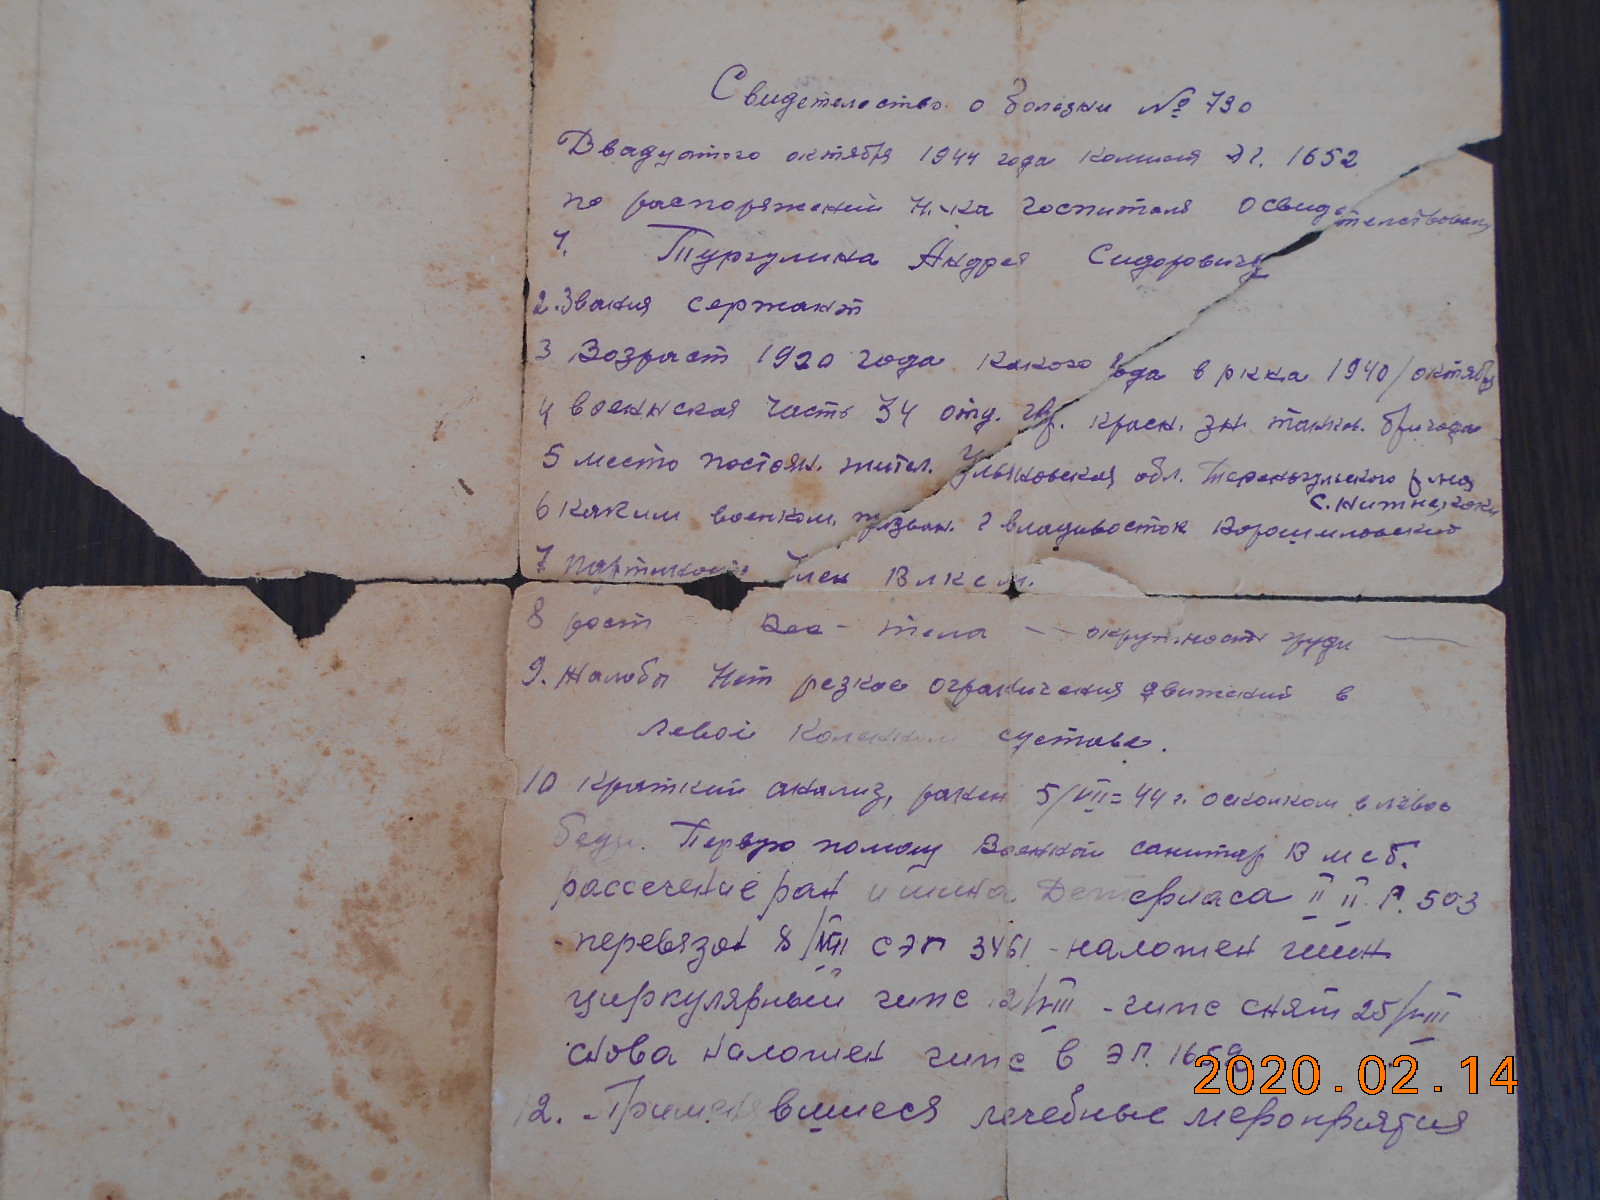 Свидетелоство о болезни № 790
Двадцатого октября 1944 года комисия Э г. 1652
по распоряжений Н-ка госпиталя Освидетелствован
1. Тургулина Андрея Сидоровича
2. Звания сержант
3 Возраст 1920 года какого года в ркка 1940/октября
4 военнская часть 34 отд. гв. красн. зн. танков. бригада
5 место постоян. жител. Ульяновская обл. Тереньгульского р-на
с. Нитнежоки
6 каким военком. призван. г владивосток Ворошиловский
7 партийност Член Влксм.
8 рост Вес - тела — окружност груди —
9. Жалобы Нет резкое ограничения движений в
левой коленном суставе.
10 краткий анализ, ранен 5/VIII=44 г. осколком в левое
бедро. Первую помощ Военной санитар В мсб.
рассечение ран и шина Детерикса П П. Г. 503
перевязан 8/VIII с ЭГ 3461 - наложен гипс
циркулярный гипс 12/VIII - гипс снят 25/VIII
снова наложен гипс в ЭГ. 1652
12. Применявшиеся лечебные мероприятия
2020.02.14